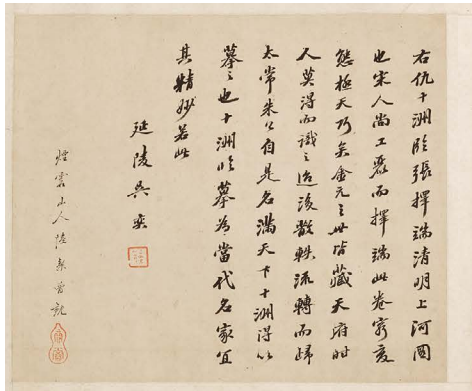 右仇十洲臨張擇端清明上河圖
也宋人尚工麗而擇端此卷窮變
態極天巧矣金元之世皆藏天府時
人莫得而識之迨後散軼流轉而歸
太常朱公自是名滿天下十洲得以
摹之也十洲臨摹為當代名家宜
其精妙若此
延陵吳奕
山人陸曾觀